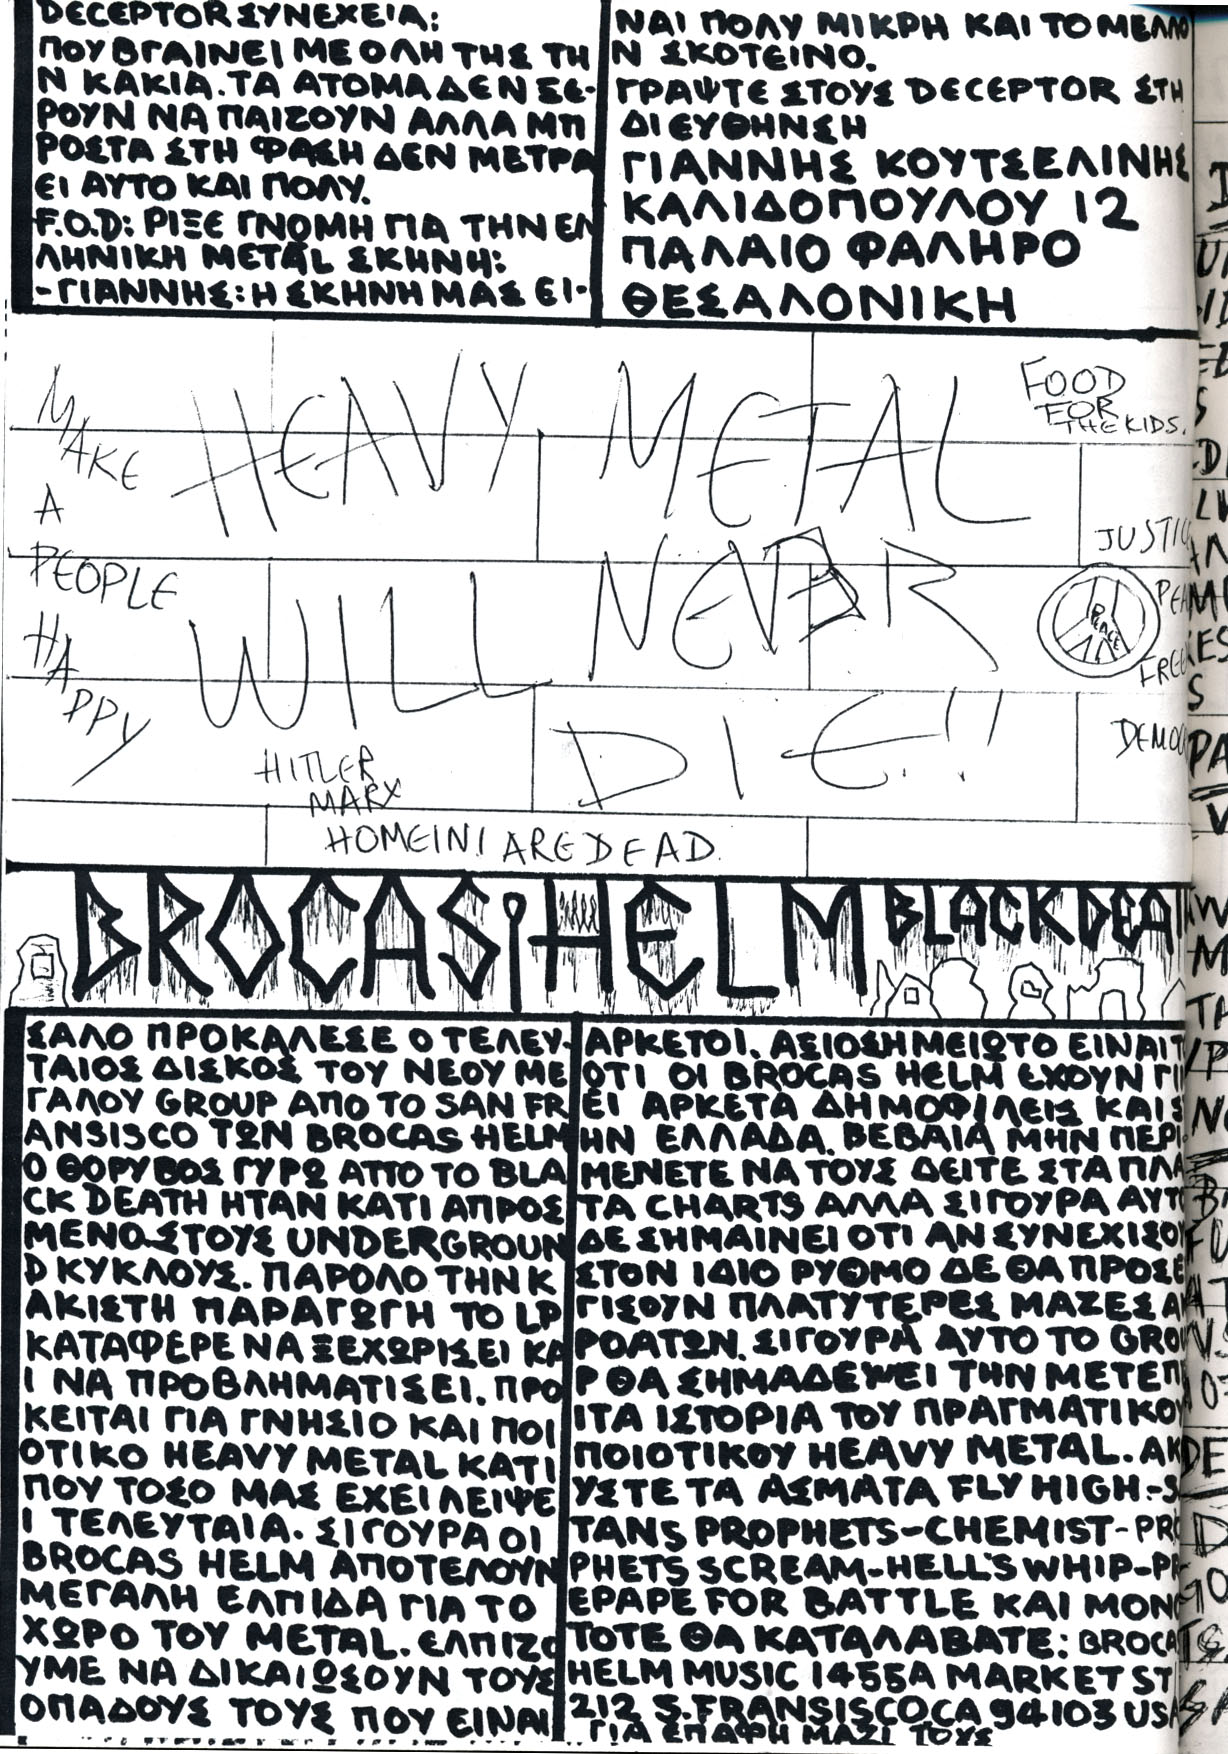 DECEPTOR ΣΥΝΕΧΕΙΑ:
ΠΟΥ ΒΓΑΙΝΕΙ ΜΕ ΟΛΗ ΤΗΣ ΤΗ
Ν ΚΑΚΙΑ. ΤΑ ΑΤΟΜΑ ΔΕΝ ΞΕ-
ΡΟΥΝ ΝΑ ΠΑΙΖΟΥΝ ΑΛΛΑ ΜΠ
ΡΟΣΤΑ ΣΤΗ ΦΑΣΗ ΔΕΝ ΜΕΤΡΑ
ΕΙ ΑΥΤΟ ΚΑΙ ΠΟΛΥ.
F.O.D: ΡΙΞΕ ΓΝΩΜΗ ΓΙΑ ΤΗΝ ΕΛ
ΛΗΝΙΚΗ METAL ΣΚΗΝΗ:
-ΓΙΑΝΝΗΣ: Η ΣΚΗΝΗ ΜΑΣ ΕΙ-
ΝΑΙ ΠΟΛΥ ΜΙΚΡΗ ΚΑΙ ΤΟ ΜΕΛΛΟ
Ν ΣΚΟΤΕΙΝΟ.
ΓΡΑΨΤΕ ΣΤΟΥΣ DECEPTOR ΣΤΗ
ΔΙΕΥΘΗΝΣΗ
ΓΙΑΝΝΗΣ ΚΟΥΤΣΕΛΙΝΗΣ
ΚΑΛΙΔΟΠΟΥΛΟΥ 12
ΠΑΛΑΙΟ ΦΑΛΗΡΟ
ΘΕΣΑΛΟΝΙΚΗ
MAKE
A
PEOPLE
HAPPY
HEAVY METAL
WILL NEVER
DIE!!
FOOD
FOR
THE KIDS.
PEACE
HITLER
MARX
HOMEINI ARE DEAD.
BROCAS HELM BLACK DEA
ΣΑΛΟ ΠΡΟΚΑΛΕΣΕ Ο ΤΕΛΕΥ-
ΤΑΙΟΣ ΔΙΣΚΟΣ ΤΟΥ ΝΕΟΥ ΜΕ
ΓΑΛΟΥ GROUP ΑΠΟ ΤΟ SAN FR
ANSISCO ΤΩΝ BROCAS HELM
Ο ΘΟΡΥΒΟΣ ΓΥΡΩ ΑΠΟ ΤΟ BLA
CK DEATH ΗΤΑΝ ΚΑΤΙ ΑΠΡΟΣ
ΜΕΝΟ ΣΤΟΥΣ UNDERGROUN
D ΚΥΚΛΟΥΣ. ΠΑΡΟΛΟ ΤΗΝ Κ
ΑΚΙΣΤΗ ΠΑΡΑΓΩΓΗ ΤΟ LP
ΚΑΤΑΦΕΡΕ ΝΑ ΞΕΧΩΡΙΣΕΙ ΚΑ
Ι ΝΑ ΠΡΟΒΛΗΜΑΤΙΣΕΙ. ΠΡΟ
ΚΕΙΤΑΙ ΓΙΑ ΓΝΗΣΙΟ ΚΑΙ ΠΟΙ
ΟΤΙΚΟ HEAVY METAL ΚΑΤΙ
ΠΟΥ ΤΟΣΟ ΜΑΣ ΕΧΕΙ ΛΕΙΨΕ
Ι ΤΕΛΕΥΤΑΙΑ. ΣΙΓΟΥΡΑ ΟΙ
BROCAS HELM ΑΠΟΤΕΛΟΥΝ
ΜΕΓΑΛΗ ΕΛΠΙΔΑ ΓΙΑ ΤΟ
ΧΩΡΟ ΤΟΥ METAL. ΕΛΠΙΖΟ
ΥΜΕ ΝΑ ΔΙΚΑΙΩΣΟΥΝ ΤΟΥΣ
ΟΠΑΔΟΥΣ ΤΟΥΣ ΠΟΥ ΕΙΝΑΙ
ΑΡΚΕΤΟΙ. ΑΞΙΟΣΗΜΕΙΩΤΟ ΕΙΝΑΙ
ΟΤΙ ΟΙ BROCAS HELM ΕΧΟΥΝ ΓΙ
ΕΙ ΑΡΚΕΤΑ ΔΗΜΟΦΙΛΕΙΣ ΚΑΙ Σ
ΗΝ ΕΛΛΑΔΑ. ΒΕΒΑΙΑ ΜΗΝ ΠΕΡΙ
ΜΕΝΕΤΕ ΝΑ ΤΟΥΣ ΔΕΙΤΕ ΣΤΑ ΠΛΑ
ΤΑ CHARTS ΑΛΛΑ ΣΙΓΟΥΡΑ ΑΥΤ
ΔΕ ΣΗΜΑΙΝΕΙ ΟΤΙ ΑΝ ΣΥΝΕΧΙΣΟΥ
ΣΤΟΝ ΙΔΙΟ ΡΥΘΜΟ ΔΕ ΘΑ ΠΡΟΣΕ
ΓΙΣΟΥΝ ΠΛΑΤΥΤΕΡΕΣ ΜΑΖΕΣ Α
ΡΟΑΤΩΝ. ΣΙΓΟΥΡΑ ΑΥΤΟ ΤΟ GROU
P ΘΑ ΣΗΜΑΔΕΨΕΙ ΤΗΝ ΜΕΤΕΠ
ΙΤΑ ΙΣΤΟΡΙΑ ΤΟΥ ΠΡΑΓΜΑΤΙΚΟΥ
ΠΟΙΟΤΙΚΟΥ HEAVY METAL. ΑΚ
ΥΣΤΕ ΤΑ ΑΣΜΑΤΑ FLY HIGH-S
TANS PROPHETS-CHEMIST-PRO
PHETS SCREAM-HELL'S WHIP-PR
EPAPE FOR BATTLE ΚΑΙ ΜΟΝ
ΤΟΤΕ ΘΑ ΚΑΤΑΛΑΒΑΤΕ: BROCA
HELM MUSIC 1455A MARKET ST
212 S. FRANSISCO CA 94103 USA
ΓΙΑ ΕΠΑΦΗ ΜΑΖΙ ΤΟΥΣ